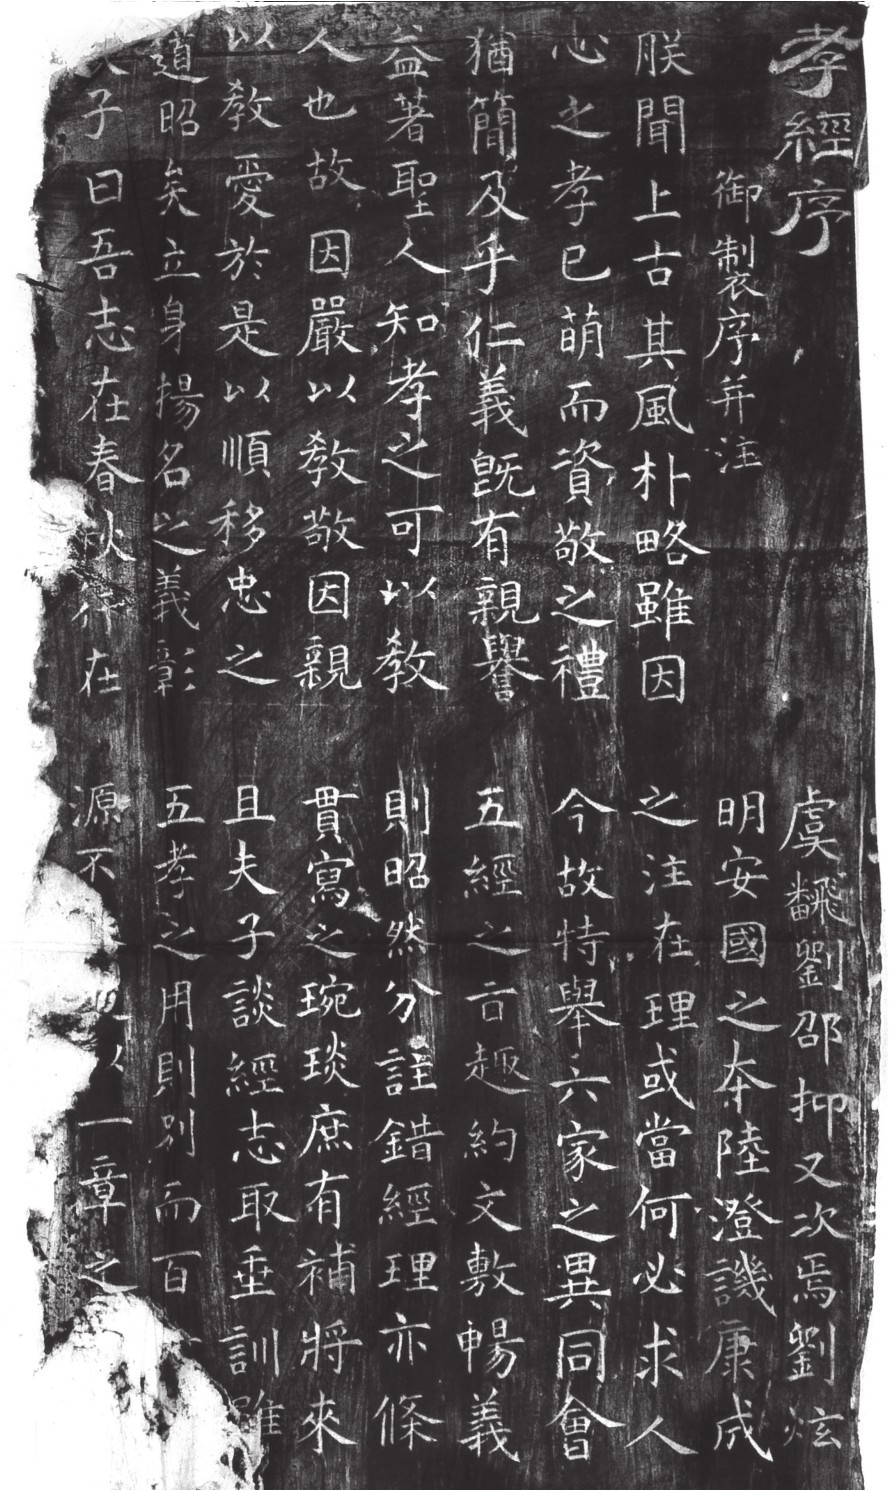 孝經序
御製序并注
朕聞上古其風朴略雖因
心之孝已萌而資敬之禮
猶簡及乎仁義旣有親譽
益著聖人知孝之可以教
人也故因嚴以教敬因親
以教愛於是以順移忠之
道昭矣立身揚名之義彰
子曰吾志在春秋行在
虞飜劉邵抑又次焉劉炫
明安國之本陸澄譏康成
之注在理或當何必求人
今故特舉六家之異同會
五經之旨趣約文敷暢義
則昭然分註錯經理亦條
貫寫之琬琰庶有補將來
且夫子談經志取垂訓雖
五孝之用則別而百
源不 以一章之